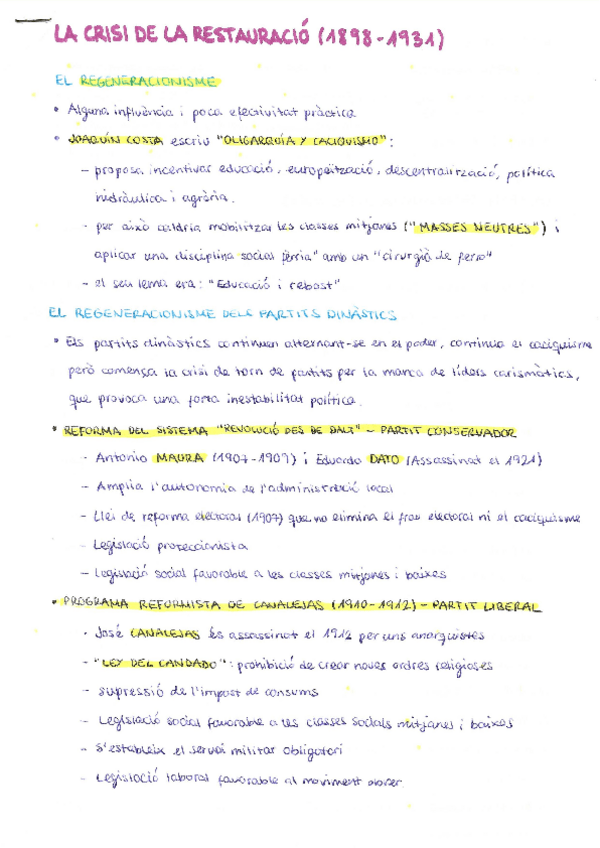 LA CRISI DE LA RESTAURACIÓ (1898-1931)
EL REGENERACIONISME
• Alguna influència i poca efectivitat pràctica
• JOAQUÍN COSTA escriu "OLIGARQUÍA Y CACIQUISMO":
- proposa incentivar educació, europeïtzació, descentralització, política
hidràulica i agrària.
- per això caldria mobilitzar les classes mitjanes ("MASSES NEUTRES") i
aplicar una disciplina social fèrria" amb un "cirurgià de ferro"
- el seu lema era: "Educació i rebost"
EL REGENERACIONISME DELS PARTITS DINÀSTICS
• Els partits dinàstics continuen alternant-se en el poder, continua el caciquisme
però comença la crisi de torn de partits per la manca de líders carismàtics,
que provoca una forta inestabilitat política.
• REFORMA DEL SISTEMA "REVOLUCIÓ DES DE DALT" - PARTIT CONSERVADOR
- Antonio MAURA (1907-1909) i Eduardo DATO (Assassinat el 1921)
- Amplia l'autonomia de l'administració local
- Llei de reforma electoral (1907) que no elimina el frau electoral ni el caciquisme
- Legislació proteccionista
- Legislació social favorable a les classes mitjanes i baixes
• PROGRAMA REFORMISTA DE CANALEJAS (1910-1912) - PARTIT LIBERAL
- José CANALEJAS és assassinat el 1912 per uns anarquistes
- "LEY DEL CANDADO": prohibició de crear noves ordres religioses
- supressió de l'impost de consums
- Legislació social favorable a les classes socials mitjanes i baixes
- S'estableix el servei militar obligatori
- Legislació laboral favorable al moviment obrer.